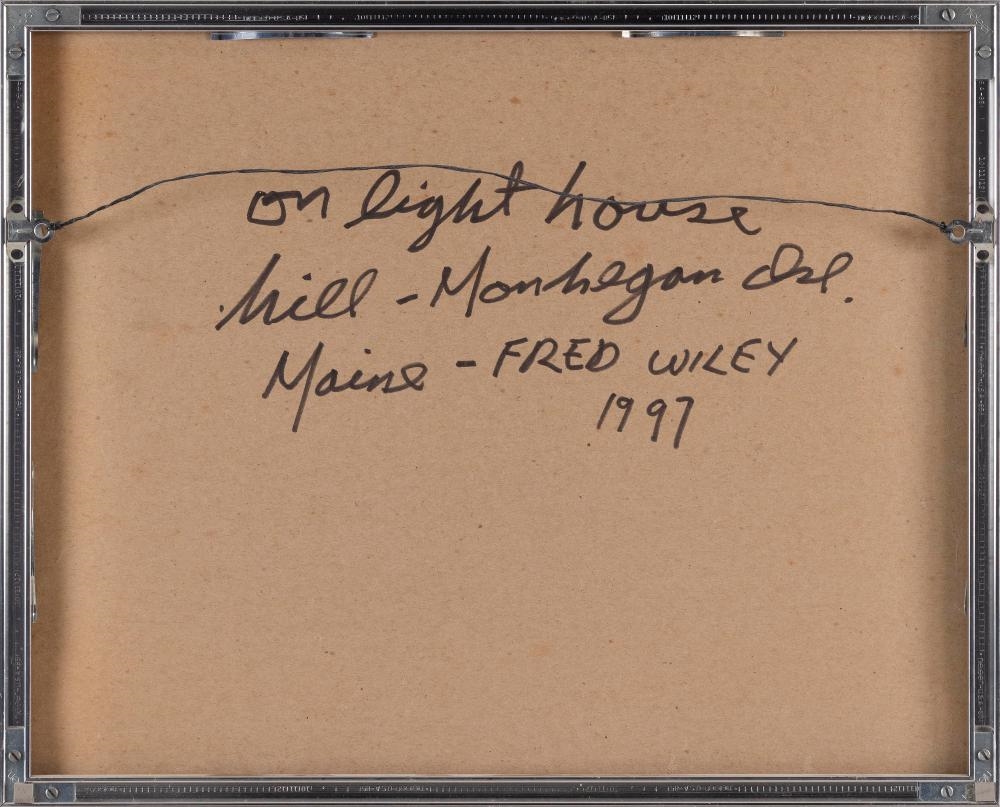 on light house
hill - Monhegan Isl.
Maine - FRED WILEY
1997